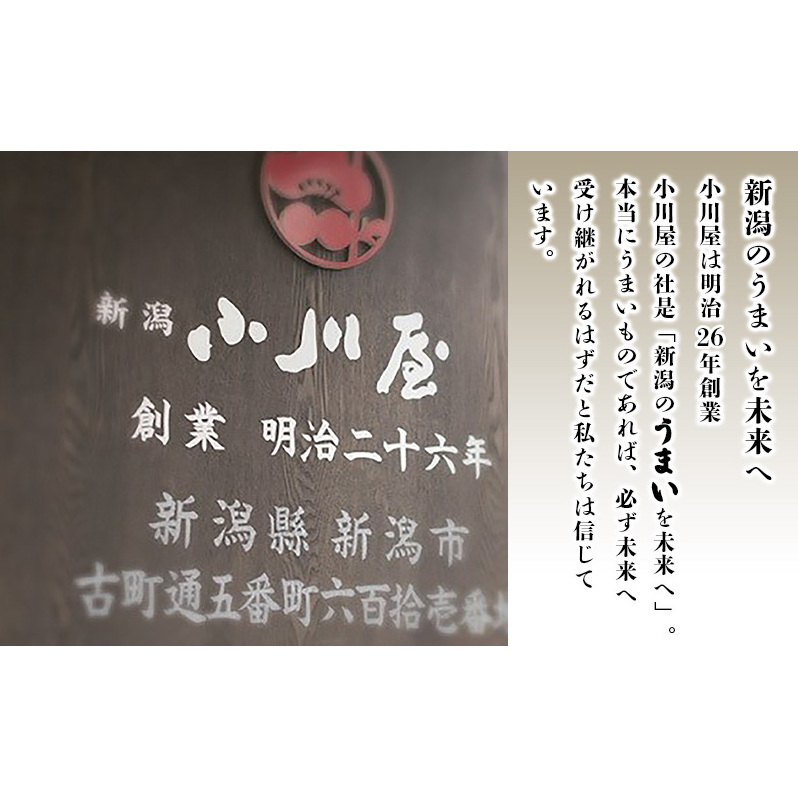 新潟のうまいを未来へ
小川屋は明治26年創業
小川屋の社是「新潟のうまいを未来へ」。
本当にうまいものであれば、必ず未来へ
受け継がれるはずだと私たちは信じて
います。
新潟 小川屋
創業 明治二十六年
新潟縣 新潟市
古町通五番町六百拾壱番